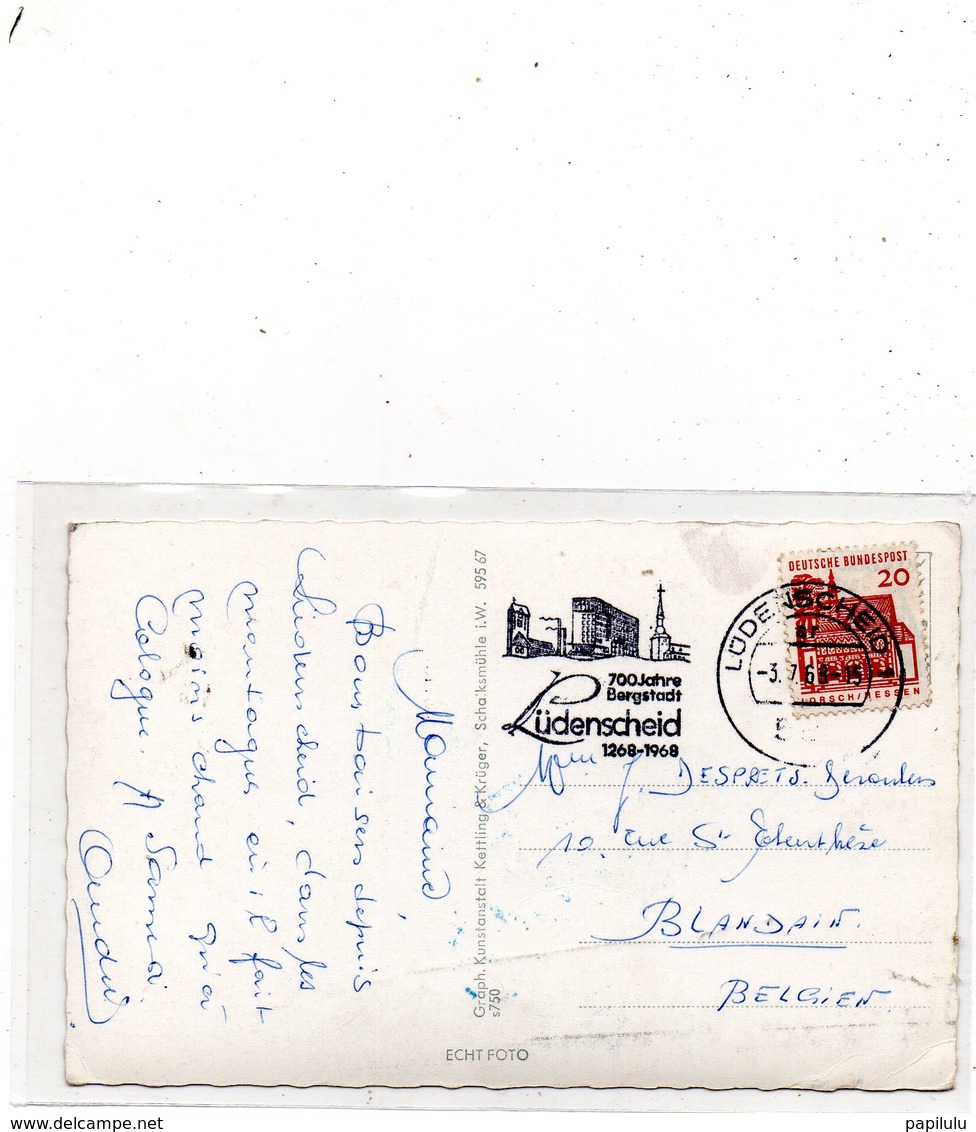 Maman,
Bons baisers depuis
Lüdenscheid, dans les
montagnes où il fait
moins chaud qu'à
Cologne. A Samedi.
André
Graph. Kunstanstalt Kettling & Krüger, Schalksmühle i.W. 595 67
s750
ECHT FOTO
700 Jahre
Bergstadt
Lüdenscheid
1268-1968
LÜDENSCHEID 1
-3.7.68-15
DEUTSCHE BUNDESPOST
20
LORSCH/HESSEN
J. DESPRETS.
10, rue St
BLANDAIN.
BELGIEN.
delcampe.net
papilulu